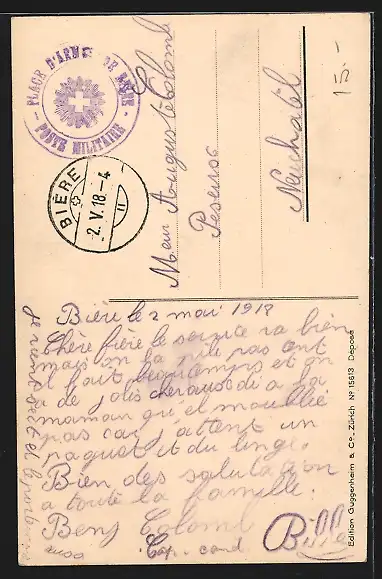 PLACE D'ARMES DE BIÈRE
POSTE MILITAIRE
BIÈRE
-2.V.18.-4
II
15.-
Auguste Colomb
Peseux
Neuchâtel
Bière le 2 mai 1918
Chère frère le service va bien
mais on la pas
il fait beau temps et on
a de jolis cheraus di a ta
maman qu'el m'oublie
pas car j'attent un
paquet et du linge.
Bien des salutation
a toute la famille.
Benj Colomb
Cap. cond
Edition Guggenheim & Co., Zürich Nº 15613 Déposé